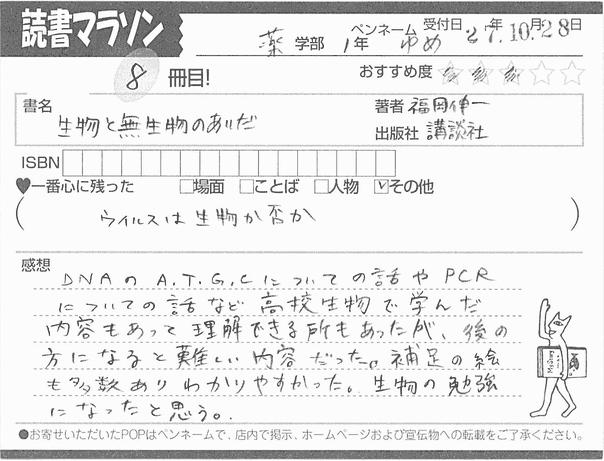 読書マラソン
薬 学部 1年 ペンネーム ゆめ 受付日 27年.10.月28日
8 冊目!
おすすめ度 ★★★☆☆
書名
生物と無生物のあいだ
著者 福岡伸一
出版社 講談社
ISBN
♥一番心に残った □場面 □ことば □人物 ☑その他
( ウイルスは生物か否か )
感想
DNAのA.T.G.Cについての話やPCR
についての話など高校生物で学んだ
内容もあって理解できる所もあったが、後の
方になると難しい内容だった。補足の絵
も多数ありわかりやすかった。生物の勉強
になったと思う。
●お寄せいただいたPOPはペンネームで、店内で掲示、ホームページおよび宣伝物への転載をご了承ください。